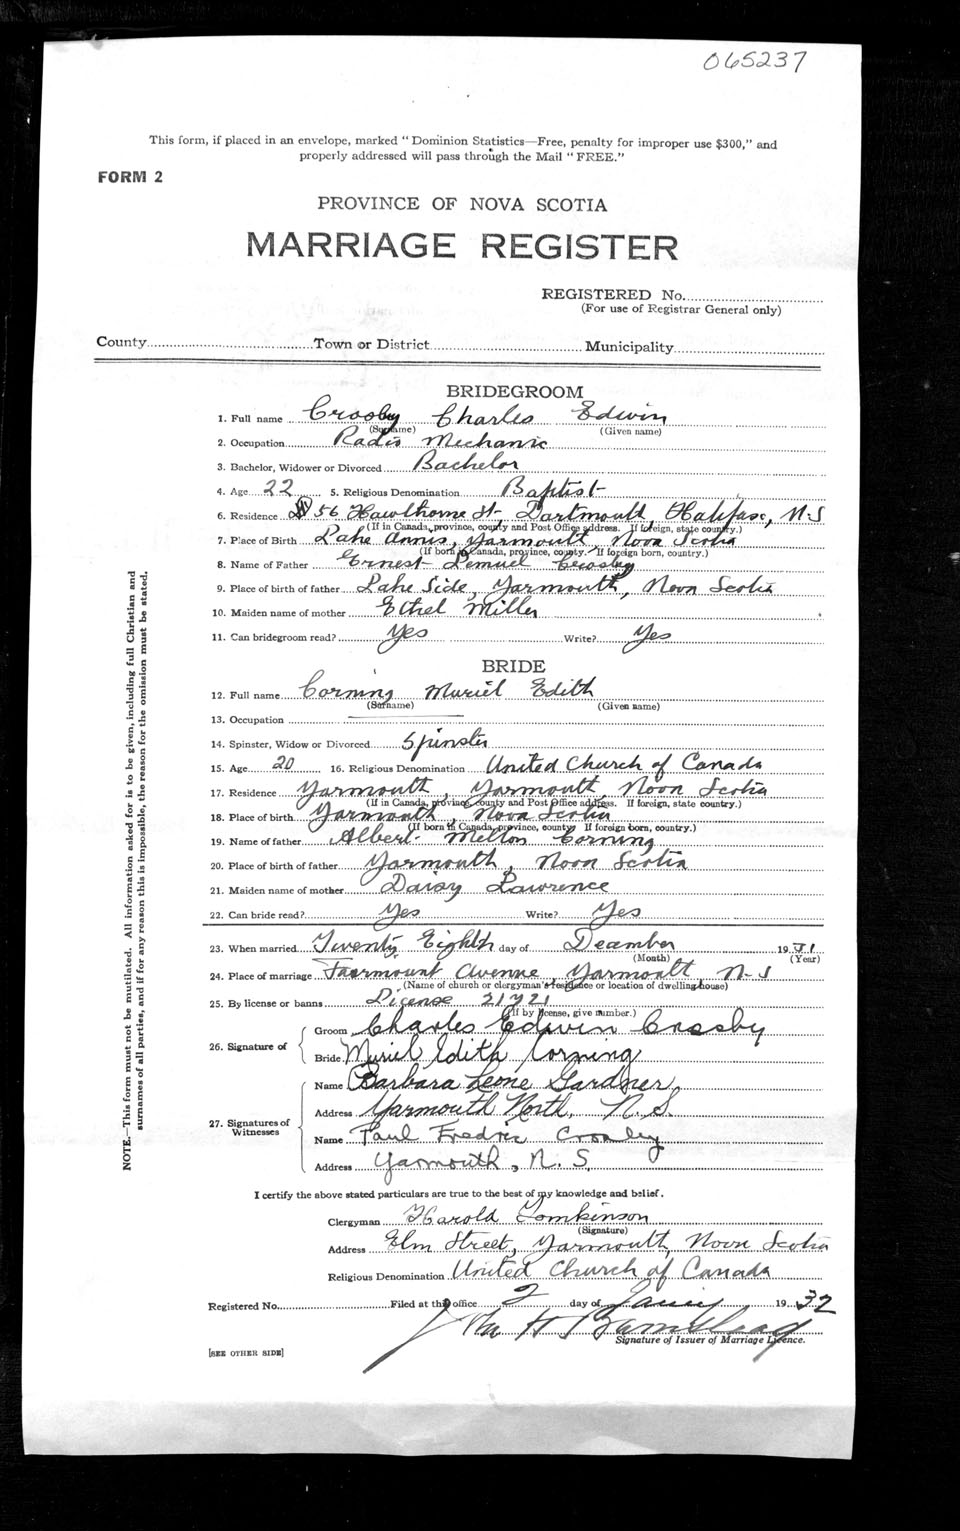 065237
This form, if placed in an envelope, marked "Dominion Statistics—Free, penalty for improper use $300," and
properly addressed will pass through the Mail "FREE."
FORM 2
PROVINCE OF NOVA SCOTIA
MARRIAGE REGISTER
REGISTERED No.
(For use of Registrar General only)
County Town or District Municipality
BRIDEGROOM
1. Full name Crosby Charles Edwin
(Surname) (Given name)
2. Occupation Radio Mechanic
3. Bachelor, Widower or Divorced Bachelor
4. Age 22 5. Religious Denomination Baptist
6. Residence 56 Hawthorne St- Dartmouth, Halifax, N.S
(If in Canada, province, county and Post Office address. If foreign, state country.)
7. Place of Birth Lake Annis, Yarmouth, Nova Scotia
(If born in Canada, province, county. If foreign born, country.)
8. Name of Father Ernest Lemuel Crosby
9. Place of birth of father Lake Side, Yarmouth, Nova Scotia
10. Maiden name of mother Ethel Miller
11. Can bridegroom read? Yes Write? Yes
BRIDE
12. Full name Corning Muriel Edith
(Surname) (Given name)
13. Occupation
14. Spinster, Widow or Divorced Spinster
15. Age 20 16. Religious Denomination United Church of Canada
17. Residence Yarmouth, Yarmouth, Nova Scotia
(If in Canada, province, county and Post Office address. If foreign, state country.)
18. Place of birth Yarmouth, Nova Scotia
(If born in Canada, province, county If foreign born, country.)
19. Name of father Albert Melton Corning
20. Place of birth of father Yarmouth, Nova Scotia
21. Maiden name of mother Daisy Lawrence
22. Can bride read? Yes Write? Yes
23. When married Twenty Eighth day of December 1931
(Month) (Year)
24. Place of marriage Fairmount Avenue, Yarmouth, N-S
(Name of church or clergyman's residence or location of dwelling house)
25. By license or banns License 21721
(If by license, give number.)
26. Signature of Groom Charles Edwin Crosby
Bride Muriel Edith Corning
27. Signatures of Witnesses Name Barbara Leone Gardner,
Address Yarmouth North, N.S.
Name Paul Fredric Crosby
Address Yarmouth, N.S.
I certify the above stated particulars are true to the best of my knowledge and belief.
Clergyman Harold Tomkinson
(Signature)
Address Elm Street, Yarmouth, Nova Scotia
Religious Denomination United Church of Canada
Registered No. Filed at this office 2 day of 1932
Signature of Issuer of Marriage Licence.
[SEE OTHER SIDE]
NOTE.—This form must not be mutilated. All information asked for is to be given, including full Christian and
surnames of all parties, and if for any reason this is impossible, the reason for the omission must be stated.